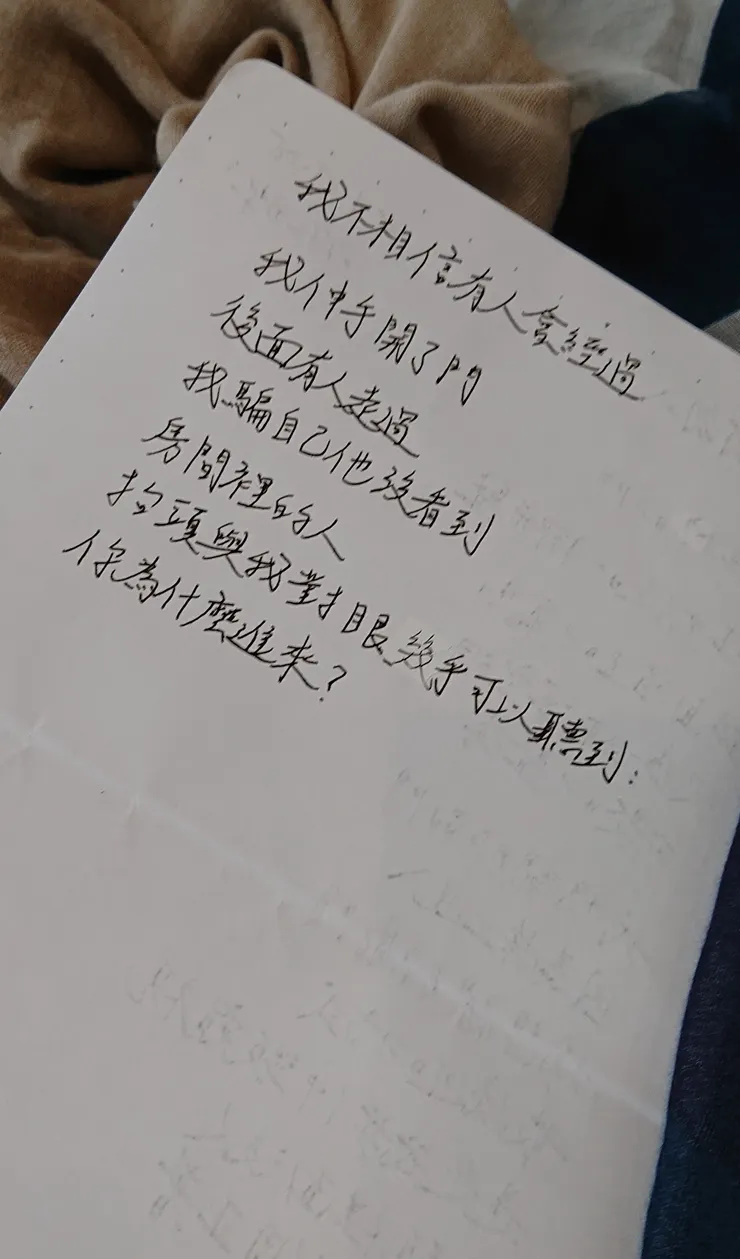 我不相信有人會經過
我伸手開了門
後面有人走過
我騙自己他沒看到
房間裡的人
抬頭與我對眼 幾乎可以聽到：
你為什麼進來？